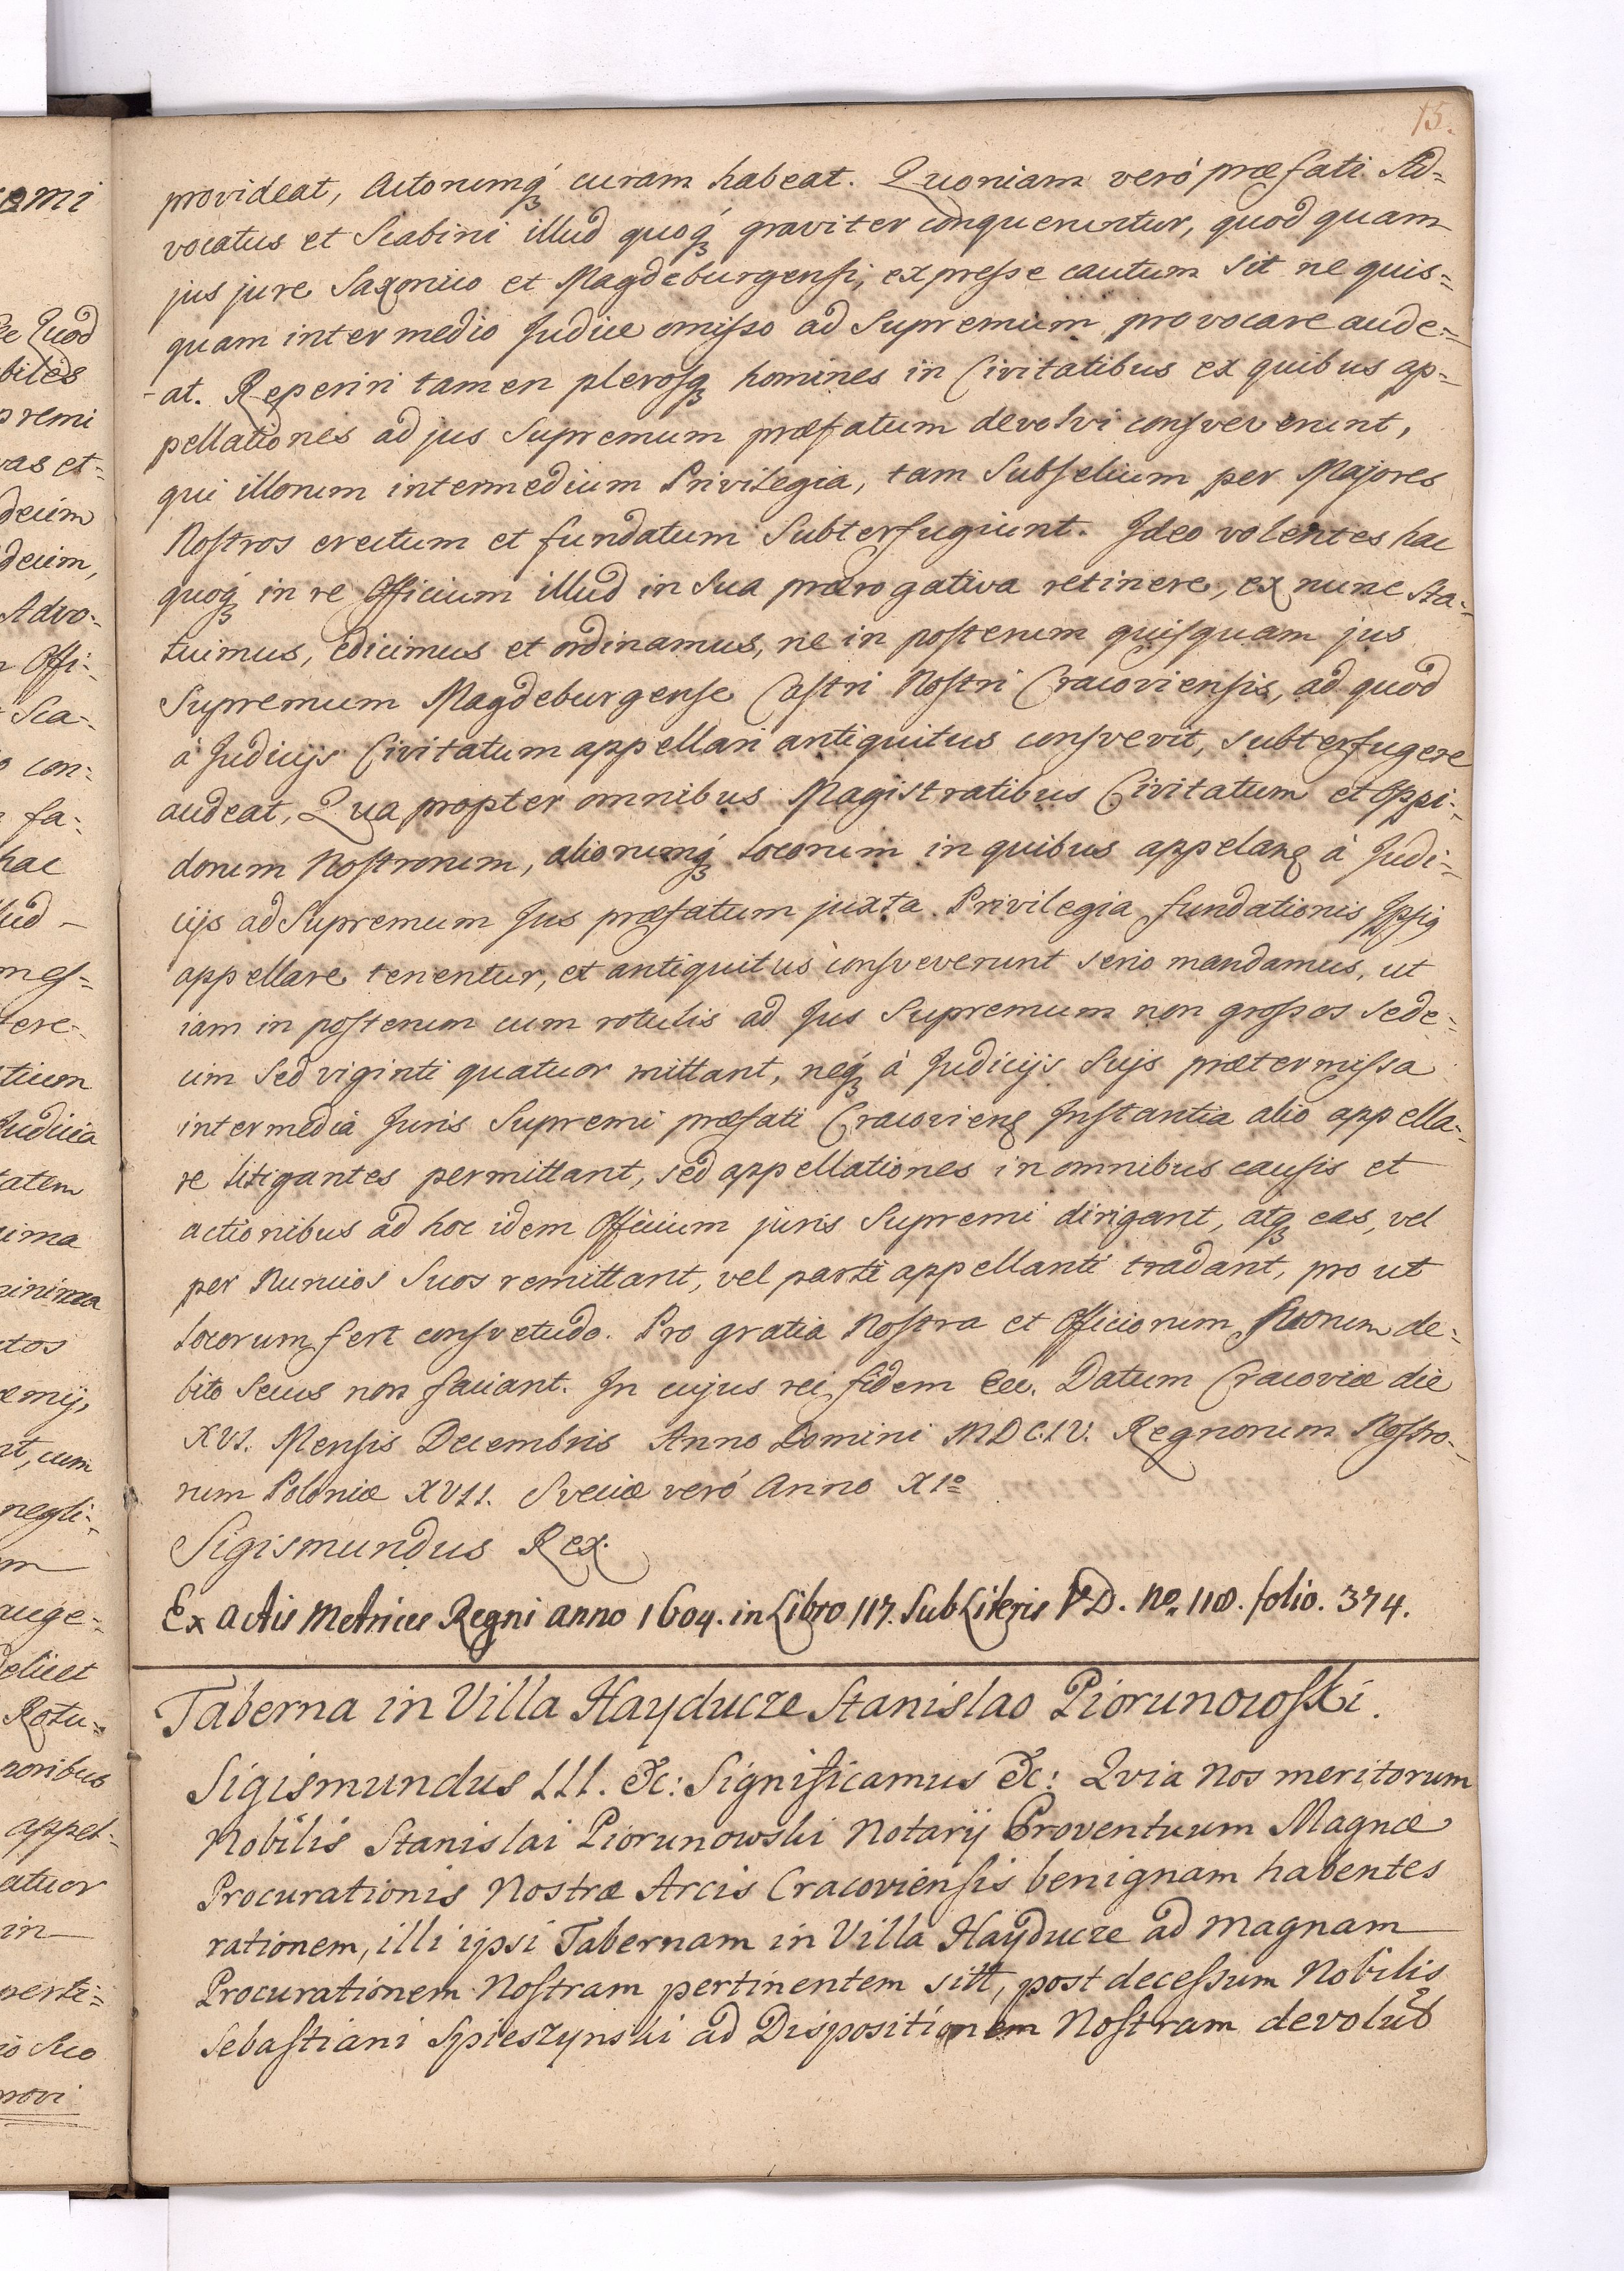 15.
provideat, Actorumq́ꝫ curam habeat. Quoniam veró præfati Ad=
vocatus et Scabini illud quoq́ꝫ graviter conqueruntur, quod quam
jus jure Saxonico et Magdeburgensi, expresse cautum sit ne quis=
quam intermedio Judice omisso ad Supremum provocare aude=
-at. Reperiri tamen plerosqꝫ homines in Civitatibus ex quibus ap=
pellationes ad jus Supremum præfatum devolvi consveverunt,
qui illorum intermedium Privilegia, tam Subselium per Majores
Nostros erectum et fundatum Subterfugiunt. Ideo volentes hac
quoq́ꝫ in re Officium illud in Sua prærogativa retinere, ex nunc Sta=
tuimus, edicimus et ordinamus, ne in posterum quisquam jus
Supremum Magdeburgense Castri Nostri Cracoviensis, ad quod
à Judicijs Civitatum appellari antiquitus consvevit, subterfugere
audeat, Qua propter omnibus Magistratibus Civitatum et Oppi=
dorum Nostrorum, aliorumq́ꝫ locorum in quibus appelanꝫ à Judi=
cijs ad Supremum Jus præfatum juxta Privilegia fundationis Ipsiꝫ
appellare tenentur, et antiquitus consveverunt serio mandamus, ut
iam in posterum cum rotulis ad Jus Supremum non grossos sede=
cim sed viginti quatuor mittant, neq́ꝫ à Judicijs Suis prætermissa
intermedià Juris Supremi præfati Cracovienꝫ Instantia alio appella=
re litigantes permittant, sed appellationes in omnibus causis et
actionibus ad hoc idem Officium juris Supremi dirigant, atqꝫ eas, vel
per Nuncios Suos remittant, vel parti appellanti tradant, pro ut
locorum fert consvetudo. Pro gratia Nostra et Officiorum Suorum de=
bito Secus non faciant. In cujus rei fidem &c. Datum Cracoviæ die
XVI. Mensis Decembris Anno Domini MDCIV. Regnorum Nostro=
rum Poloniæ XVII. Sveciæ veró Anno XIo
Sigismundus Rex.
Ex Actis Metrices Regni anno 1604. in Libro 117. Sub Literis PD. No. 118. folio. 374.
Taberna in Villa Hayducze Stanislao Piorunowoski.
Sigismundus III. &c: Significamus &c: Qvia Nos meritorum
Nobilis Stanislai Piorunowski Notarij Proventuum Magnæ
Procurationis Nostræ Arcis Cracoviensis benignam habentes
rationem, illi ipsi Tabernam in Villa Hayducze ad Magnam
Procurationem Nostram pertinentem sitt, post decessum Nobilis
Sebastiani Spieszynski ad Dispositionem Nostram devolut